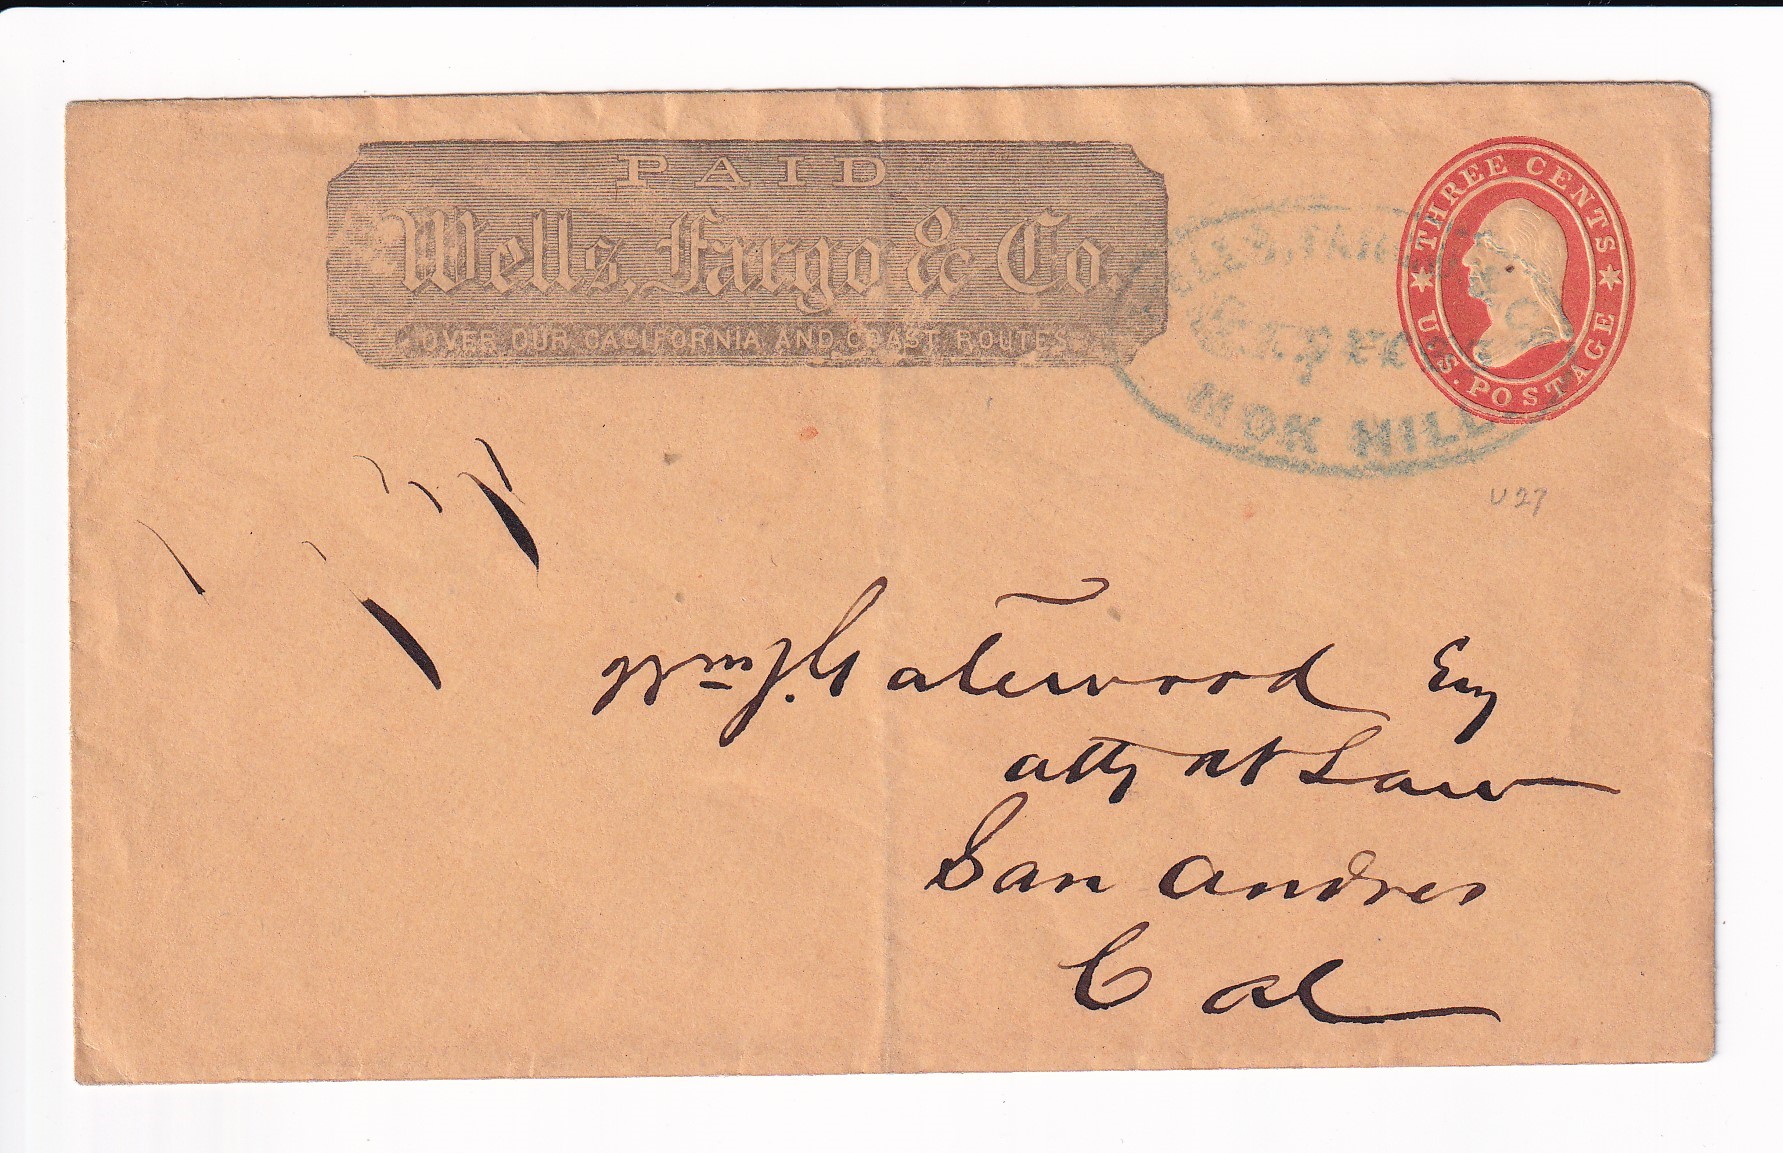 PAID
Wells, Fargo & Co.
OVER OUR CALIFORNIA AND COAST ROUTES
THREE CENTS
U.S. POSTAGE
WELLS, FARGO & CO
Express
MOK HILL
U27
Wm J. Gatewood Esq
atty at Law
San Andres
Cal